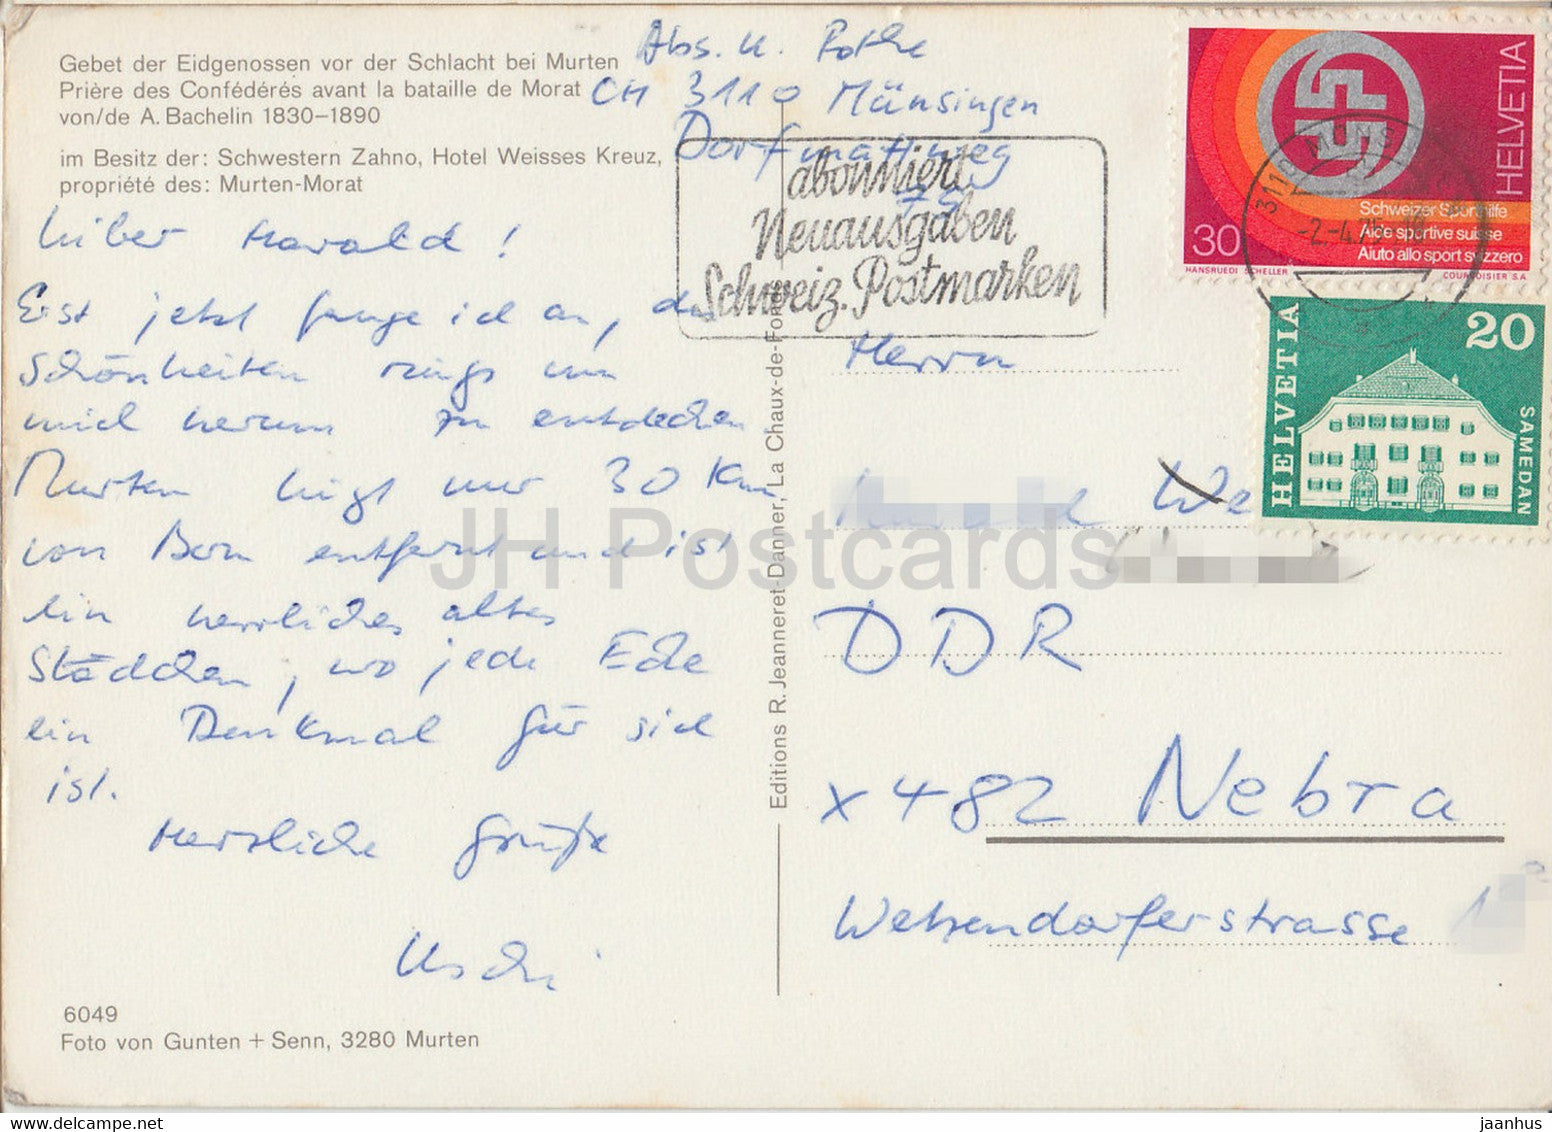 Gebet der Eidgenossen vor der Schlacht bei Murten
Prière des Confédérés avant la bataille de Morat
von/de A. Bachelin 1830–1890
im Besitz der: Schwestern Zahno, Hotel Weisses Kreuz,
propriété des: Murten-Morat
Abs. U. Rothe
CH 3110 Münsingen
Dorfmattweg
lieber Harald!
Erst jetzt fange ich an, die
Schönheiten rings um
mich herum zu entdecken
Murten liegt nur 30 Km
von Bern entfernt und ist
ein herrliches altes
Städtchen, wo jede Ecke
ein Denkmal für sich
ist.
Herzliche Grüße
Uschi
6049
Foto von Gunten + Senn, 3280 Murten
Editions R. Jeanneret-Danner, La Chaux-de-Fonds
abonniert
Neuausgaben
Schweiz. Postmarken
HELVETIA
30
Schweizer Sporthilfe
Aide sportive suisse
Aiuto allo sport svizzero
HANSRUEDI SCHELLER
COURVOISIER S.A.
3110 MÜNS
-2.-4.75-10
HELVETIA
20
SAMEDAN
Herrn
Harald We
DDR
x 482 Nebra
Wetzendorferstrasse
JH Postcards
hippostcard.com
jaanhus